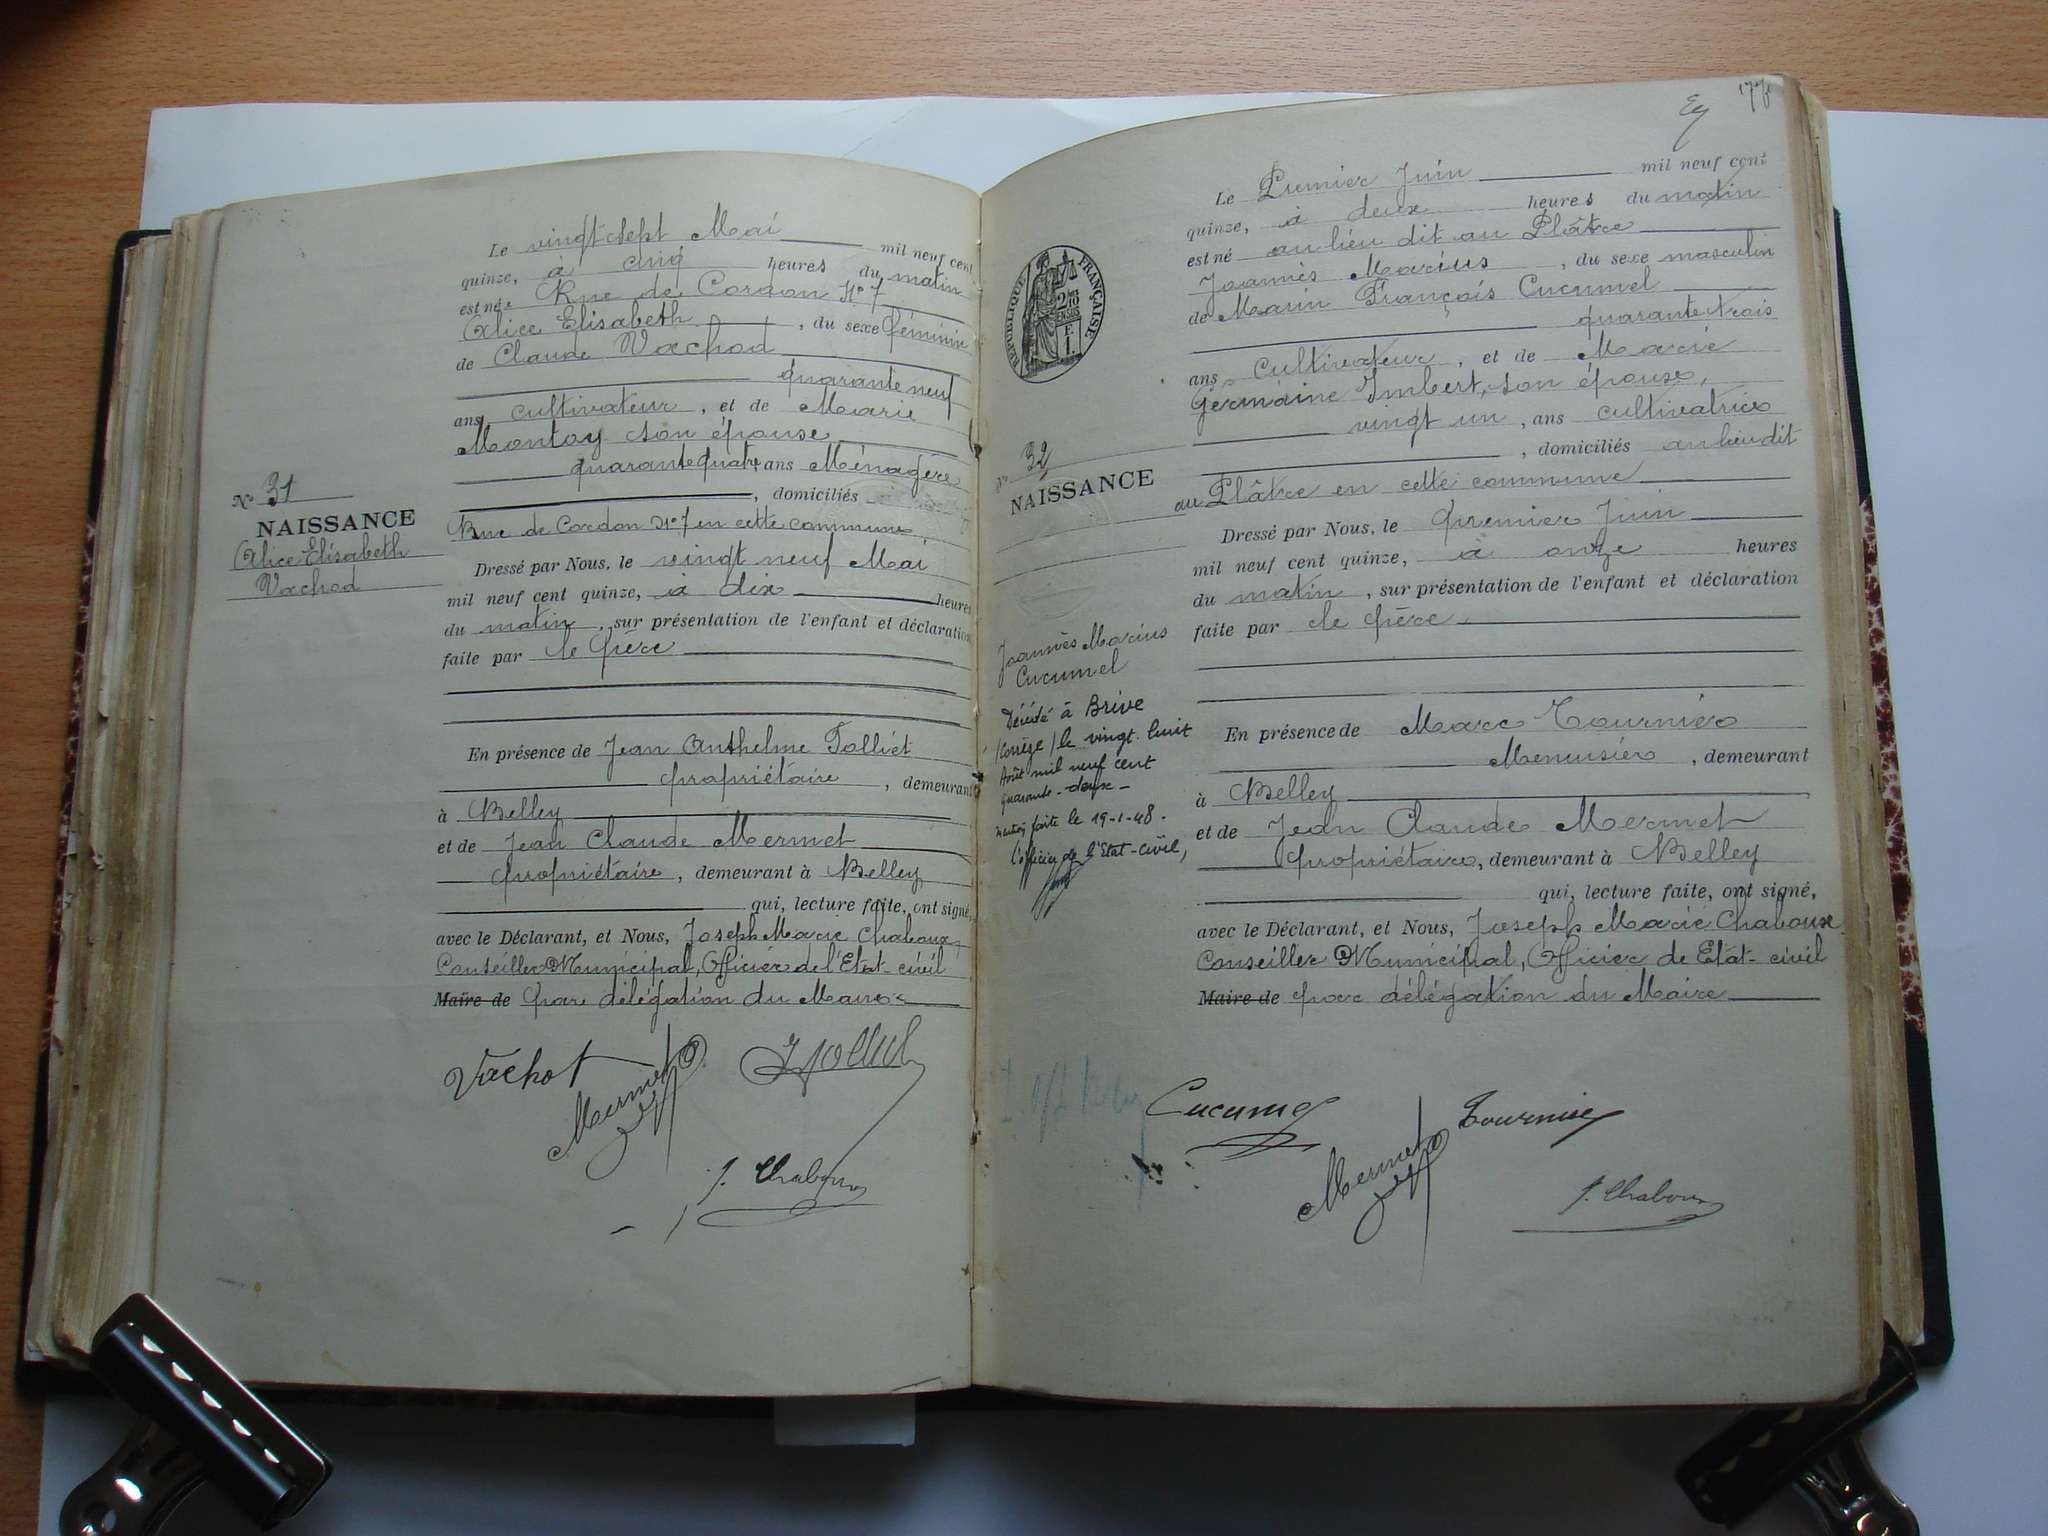 Le vingt sept Mai mil neuf cent
quinze, à cinq heures du matin
est née Rue de Cordon N° 7
Alice Elisabeth, du sexe féminin
de Claude Vachod
quarante neuf
ans cultivateur, et de Marie
Montoy son épouse
quarante quatre ans Ménagère
, domiciliés
Rue de Cordon N° 7 en cette commune,
Dressé par Nous, le vingt neuf Mai
mil neuf cent quinze, à dix heures
du matin, sur présentation de l'enfant et déclaration
faite par le père
En présence de Jean Anthelme Tolliet
propriétaire, demeurant
à Belley
et de Jean Claude Mermet
propriétaire, demeurant à Belley
qui, lecture faite, ont signé,
avec le Déclarant, et Nous, Joseph Marie Chaboux,
Conseiller Municipal, Officier de l'Etat-civil
Maire de par délégation du Maire
N° 31
NAISSANCE
Alice Elisabeth
Vachod
Vachot
Mermet
J. Chaboux
177
Le Premier Juin mil neuf cent
quinze, à deux heures du matin
est né au lieu dit au Plâtre
Joannès Marius, du sexe masculin
de Marin François Cucumel
quarante trois
ans cultivateur, et de Marie
Germaine Imbert, son épouse,
vingt un, ans cultivatrice
, domiciliés au lieu dit
au Plâtre en cette commune
Dressé par Nous, le premier Juin
mil neuf cent quinze, à onze heures
du matin, sur présentation de l'enfant et déclaration
faite par le père
En présence de Marc Tournier
Menuisier, demeurant
à Belley
et de Jean Claude Mermet
propriétaire, demeurant à Belley
qui, lecture faite, ont signé,
avec le Déclarant, et Nous, Joseph Marie Chaboux
Conseiller Municipal, Officier de Etat-civil
Maire de par délégation du Maire
RÉPUBLIQUE FRANÇAISE
N° 32
NAISSANCE
Joannès Marius
Cucumel
Décédé à Brive
(Corrèze) le vingt-huit
Août mil neuf cent
quarante-deux-
Mention faite le 19-1-48.
l'officier de l'Etat-civil,
Cucumel
Tournier
Mermet
J. Chaboux